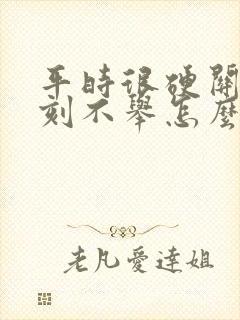 平時很硬關
刻不舉怎麼
老凡愛達姐